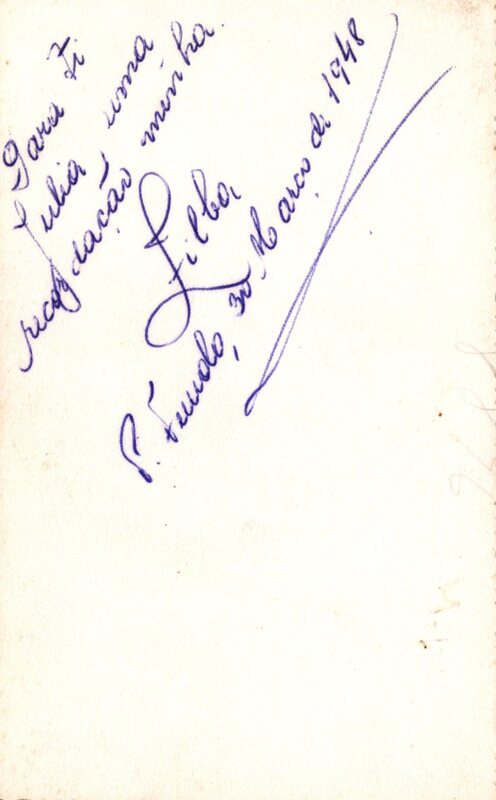 Para Ti
Julia uma
recordação minha
Zilba
P. Fundo, 30 Março de 1948